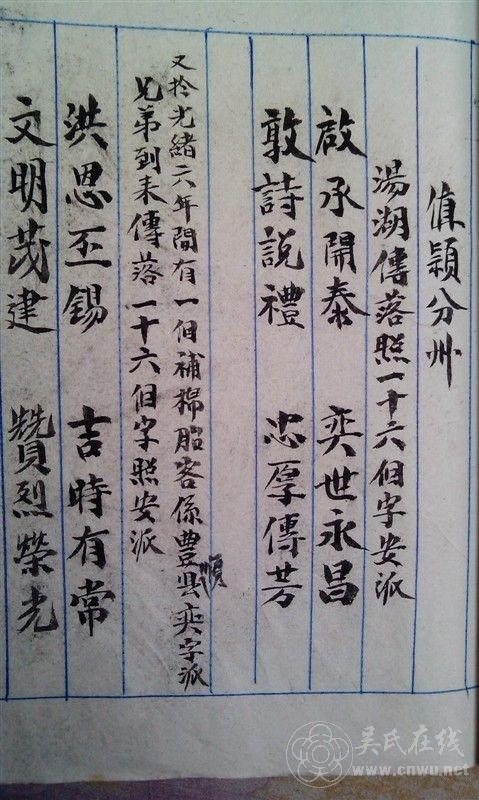 值穎分州
湯湖傳落照一十六個字安派
啟承開泰 奕世永昌
敦詩說禮 忠厚傳芳
又於光緒六年間有一個補棉胎客係豐順縣奕字派
兄弟到来傳落一十六個字照安派
洪恩丕錫 吉時有常
文明茂建 贊烈榮光
吴氏在线
www.cnwu.net